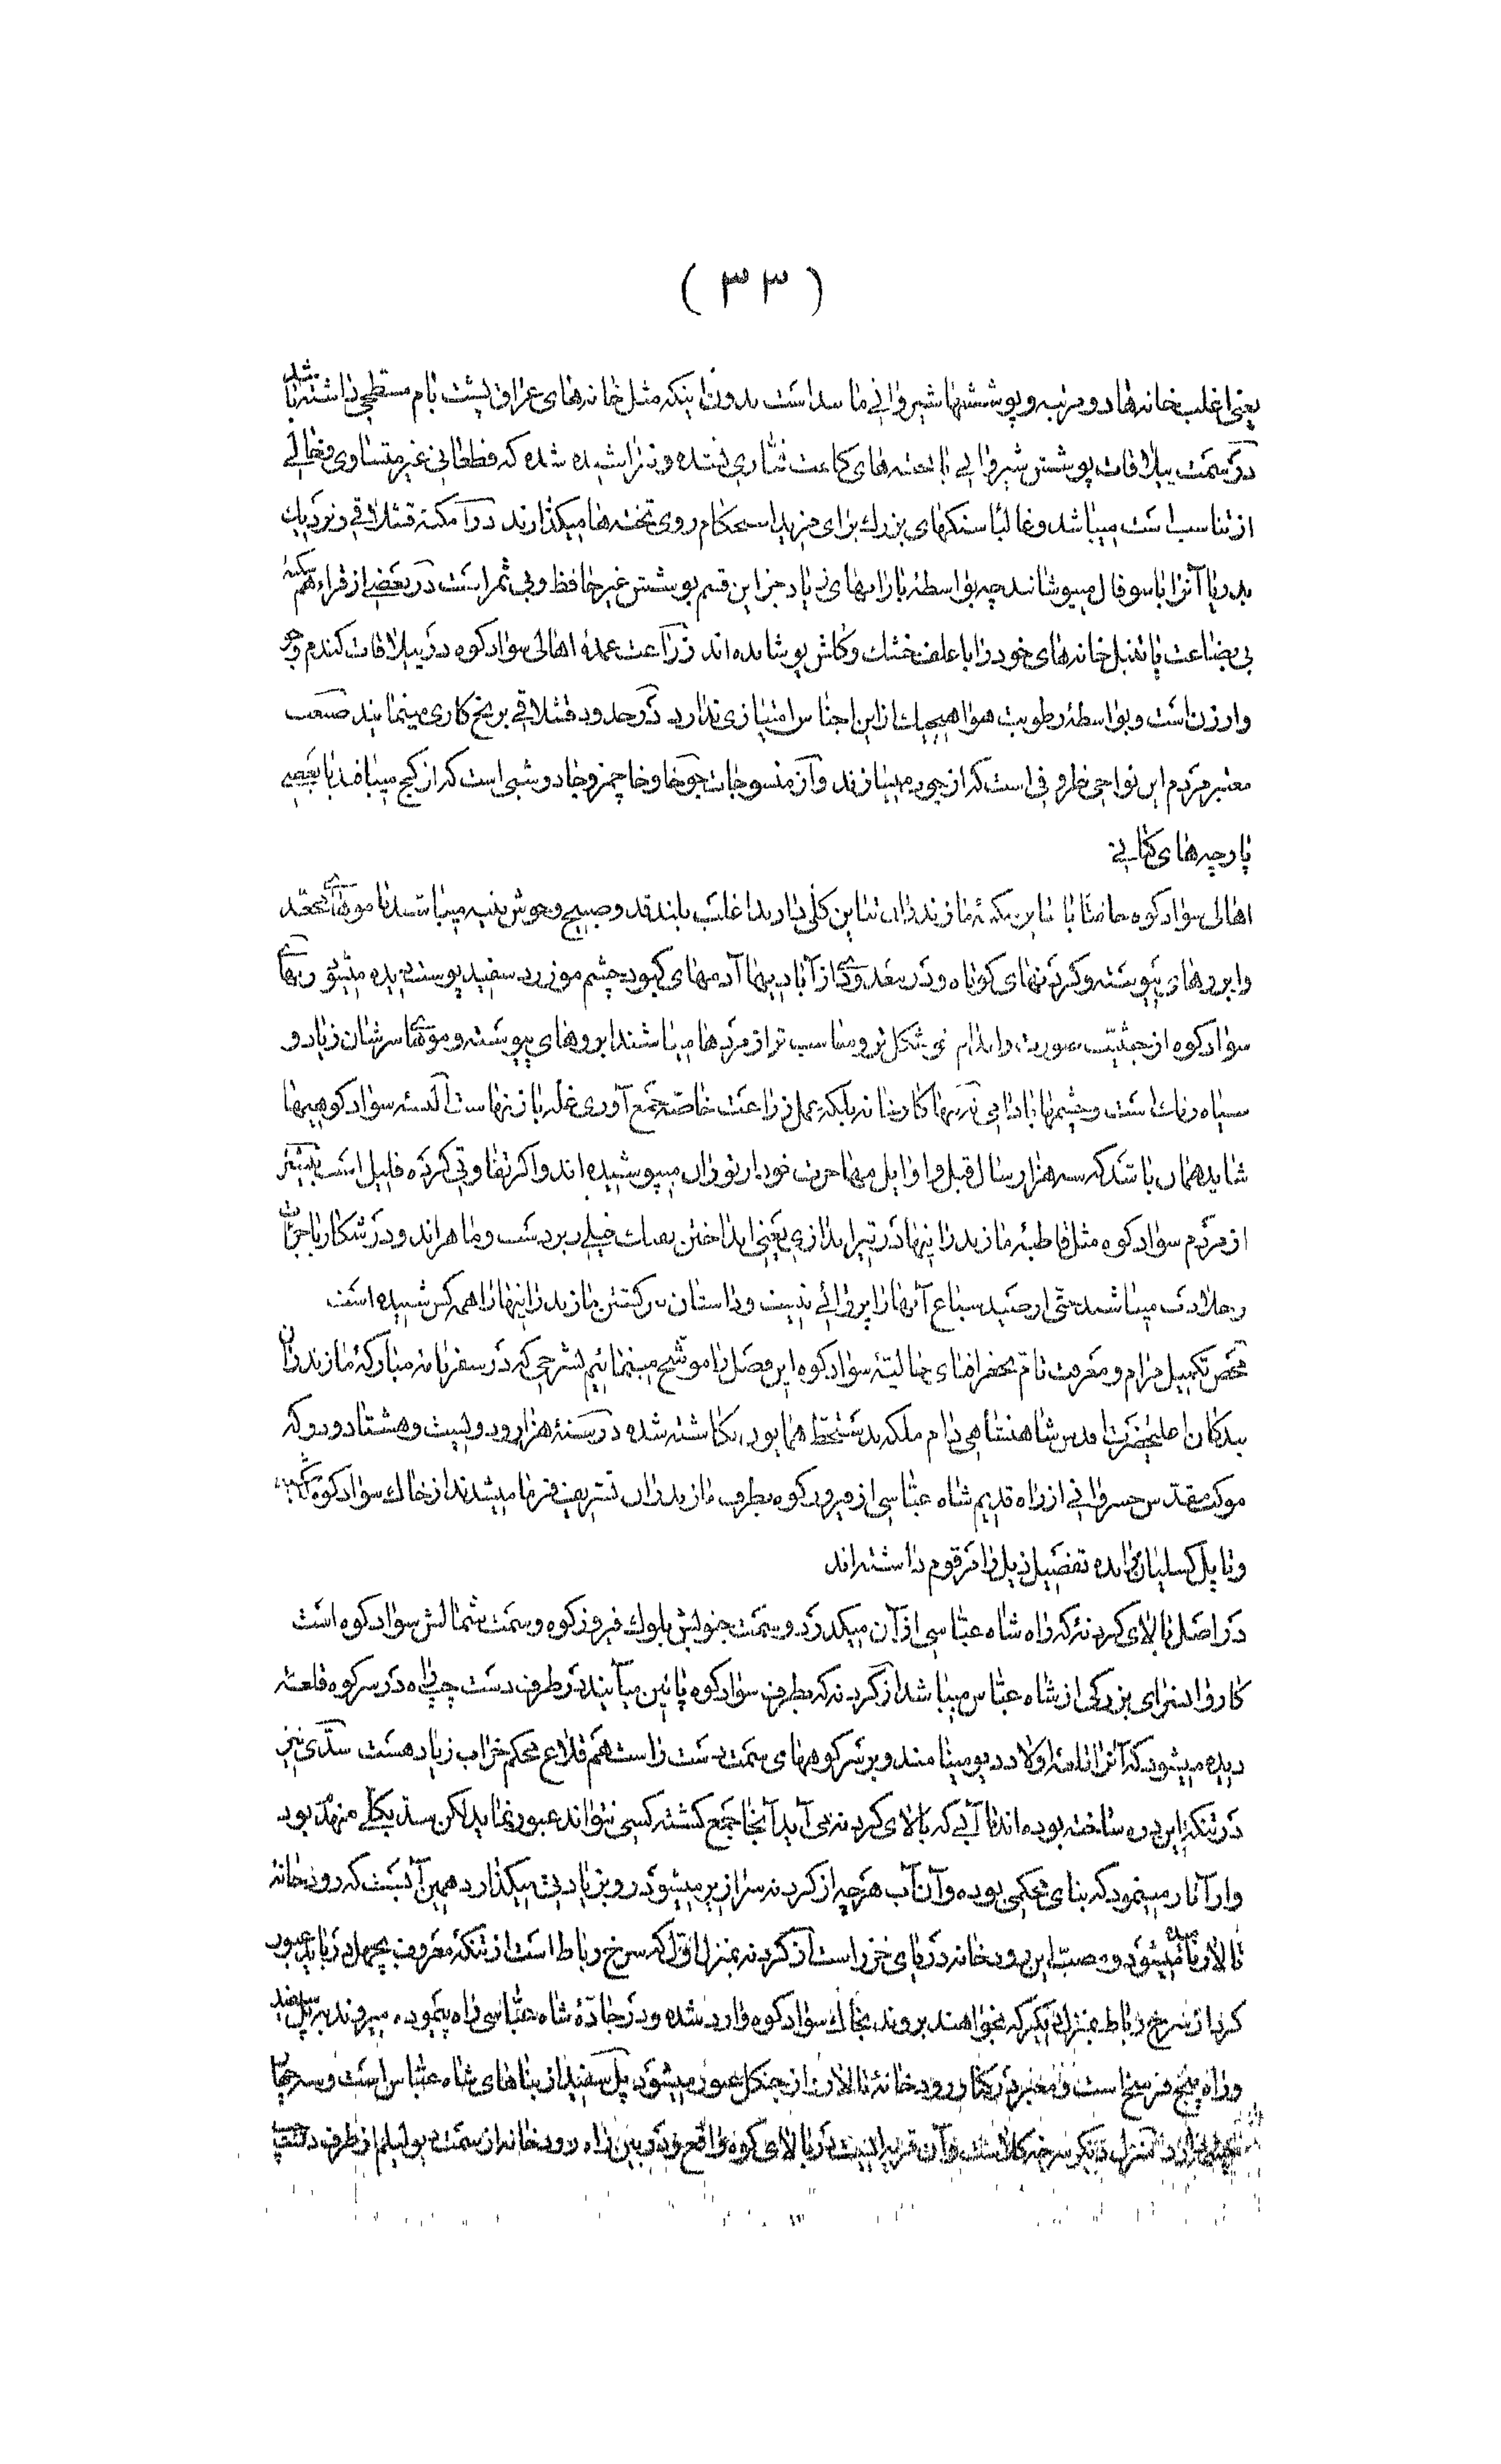 ( ۳۳ )
یعنی اغلب خانه‌ها دو مرتبه و پوششها شیروانی مانند است بدون اینکه مثل خانه‌های عراق پشت بام مسطحی داشته باشد
در سمت ییلاقات پوشش شیروانی با تخته‌های نتراشیده شده که فطعاتی غیر متساوی و خالی
از تناسب است میباشد و غالباً سنکهای بزرك برای مزید استحکام روی تخته‌ها میکذارند در امکنه قشلاقی و نزدیك
بدریا آنرا با سوفال میپوشانند چه بواسطهٔ بارانهای زیاد جز این قسم پوشش غیر حافظ و بی ثمر است در بعضی از قراء هم سکنهٔ
بی بضاعت یا تنبل خانه‌های خود را با علف خشك و کلش پوشانده‌اند زراعت عمدهٔ اهالی سواد کوه در ییلاقات کندم و جو
و ارزن است و بواسطهٔ رطوبت هوا هیچیك از این اجناس امتیازی ندارد در حدود قشلاقی برنج کاری مینمایند صنعت
معتبر مردم این نواحی ظروفی است که از چوب میسازند و از منسوجات چوخا و خاچمز و جادوشبی است که از کج میبافند با بعضی
پارچه‌های کتانی
اهالی سواد کوه با سایر سکنهٔ مازندران تباین کلی دارند اغلب بلند قد و صبیح و خوش بنیه میباشند با موهای مجعّد
و ابروهای پیوسته و کردنهای کوتاه و در بعد ودی از آبادیها آدمهای کبود چشم مو زرد سفید پوست دیده میشود زنهای
سواد کوه از حیثیت صورت و اندام خوشکل‌تر و مناسب‌تر از مردها میباشند ابروهای پیوسته و موهای سرشان زیاد و
سیاه رنك است و چشمها بادامی نه تنها کار خانه بلکه عمل زراعت خاصّه جمع آوری غله با زنهاست البسه سواد کوهیها
شاید همان باشد که سه هزار سال قبل و اوایل مهاجرت خود از توران میپوشیده‌اند و اکر تفاوتی کرده قلیل است بیشتر
از مردم سواد کوه مثل قاطبهٔ مازندرانیها در تیر اندازی یعنی انداختن تفنك خیلی زبردست و ماهراند و در شکار با جرأت
و جلادت میباشند حتّی از صید سباع آنها را پروائی نیست و داستان ببر کشتن مازندرانیها را همه کس شنیده است
محض تکمیل مرام و معرفت تامّ بجغرافیای حالیّهٔ سواد کوه این فصل را موشّح مینمائیم بشرحی که در سفر نامه مبارکهٔ مازندران
بندکان اعلیحضرت اقدس شاهنشاهی دام ملکه بدستخط همایون نکاشته شده در سنهٔ هزار و دویست و هشتاد و دو که
موکب مقدّس خسروانی از راه قدیم شاه عبّاسی از فیروز کوه بطرف مازندران تشریف فرما میشدند از خاك سواد کوه
و تا پل کسلیان آمده تفصیل ذیل را مرقوم داشته‌اند
در اصل بالای کردنه که راه شاه عبّاسی از آن میکذرد و سمت جنوبش بلوك فیروز کوه و سمت شمالش سواد کوه است
کاروانسرای بزرکی از شاه عبّاس میباشد از کردنه که بطرف سواد کوه پائین میآیند در طرف دست چپ راه در سر کوه قلعهٔ
دیده میشود که آنرا قلعه اولاد دیو مینامند و بر سر کوههای سمت دست راست هم قلاع محکم خراب زیاد هست سدّی نیز
در تنکهٔ این درّه ساخته بوده‌اند تا آبی که بالای کردنه می‌آید آنجا جمع کشته کسی نتواند عبور نماید لکن سدّ بکلّی منهدّ بود
و از آثار مینمود که بنای محکمی بوده و آن آب هر چه از کردنه سرازیر میشود رو بزیادیت میکذارد همین آبست که رود خانهٔ
تالار نامیده میشود و مصبّ این رود خانه دریای خزر است از کردنه بمنزل اوّل که سرخ رباط است از تنکهٔ معروف بچهل در باید عبور
کرد از سرخ رباط بمنزل دیکر که بخواهند بروند بخاك سواد کوه وارد شده و در جادّهٔ شاه عبّاسی راه پیموده میروند به پل سفید
و راه پنج فرسخ است و معبر در کنار رود خانهٔ تالار از جنکل عبور میشود پل سفید از بناهای شاه عبّاس است و سه چهار
چشمه دارد منزل دیکر سرخه کلا است و آن قریه‌ایست در بالای کوه واقع و در بین راه رود خانه از سمت دوابیلم از طرف دست چپ